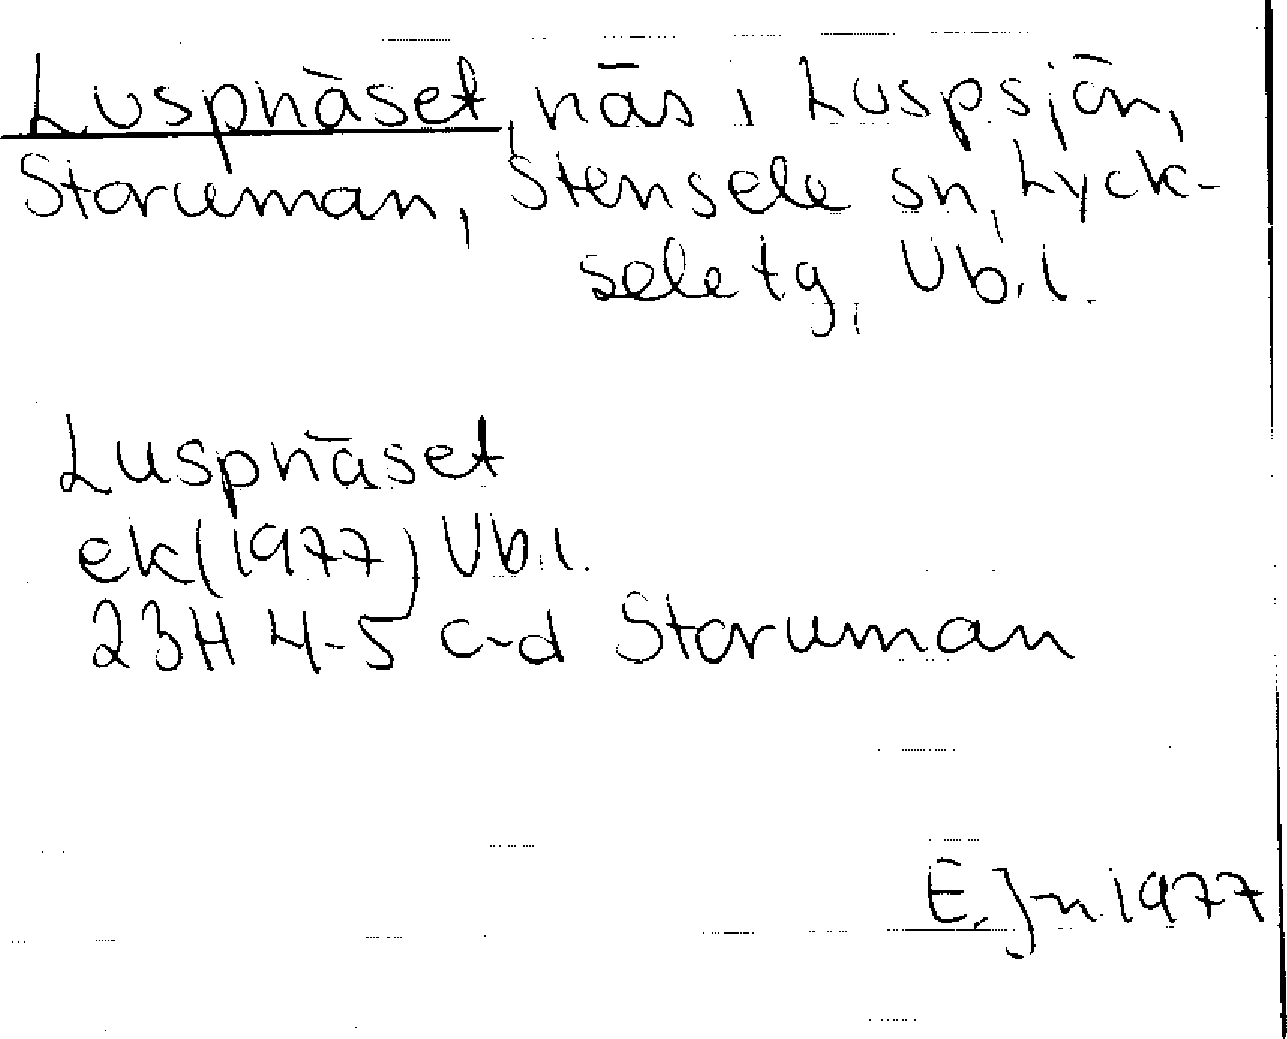 Luspnäset, näs i Luspsjön,
Storuman, Stensele sn, Lyck-
sele tg, Vb. l.
Luspnäset
ek (1977) Vb. l.
23H 4-5 c-d Storuman
E. Jn 1977